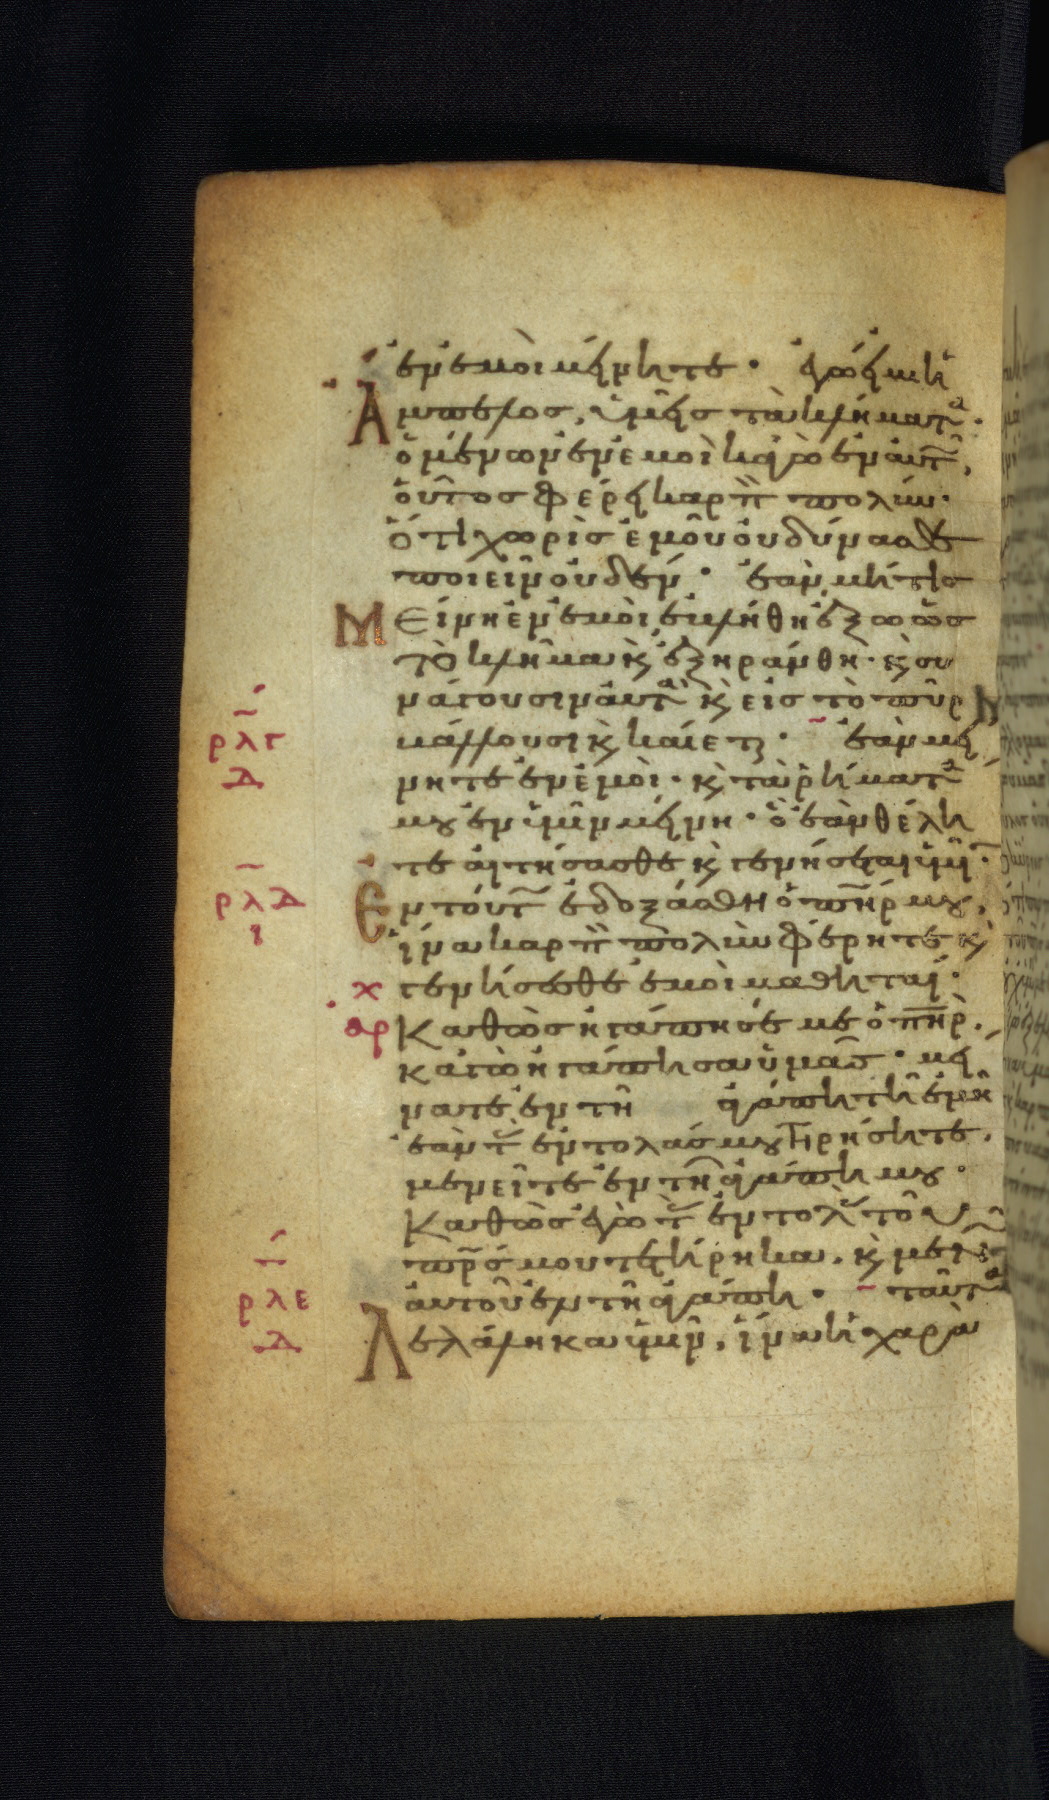 ἐν ἐμοὶ μείνητε · ἐγώ εἰμι ἡ
Ἄμπελος, ὑμεῖς τὰ κλήματα·
ὁ μένων ἐν ἐμοὶ κἀγὼ ἐν αὐτῷ,
οὗτος φέρει καρπὸν πολύν·
ὅτι χωρὶς ἐμοῦ οὐ δύνασθε
ποιεῖν οὐδέν · ἐὰν μή τις
Μείνῃ ἐν ἐμοὶ, ἐβλήθη ἔξω ὡς
τὸ κλῆμα κ̀ ἐξηράνθη · κ̀ συ
νάγουσιν αὐτὰ κ̀ εἰς τὸ πῦρ
ρλγ
βάλλουσι κ̀ καίεται · ἐὰν μεί
Δ
νητε ἐν ἐμοὶ · κ̀ τὰ ῥήματα
μου ἐν ὑμῖν μείνῃ · ὃ ἐὰν θέλη
τε αἰτήσασθε κ̀ γενήσεται ὑμῖν·
ρλΔ
Ἐν τούτῳ ἐδοξάσθη ὁ πη̄ρ μου,
ι
ἵνα καρπὸν πολὺν φέρητε κ̀
γενήσεσθε ἐμοὶ μαθηταί·
αρ Καθὼς ἠγάπησέ με ὁ πη̄ρ,
κἀγὼ ἠγάπησα ὑμᾶς · μεί
νατε ἐν τῇ ἀγάπῃ τῇ ἐμῇ
ἐὰν τὰς ἐντολάς μου τηρήσητε,
μενεῖτε ἐν τῇ ἀγάπῃ μου ·
Καθὼς ἐγὼ τὰς ἐντολὰς τοῦ
πρ̄ς μου τετήρηκα, κ̀ μένω
ρλε
αὐτοῦ ἐν τῇ ἀγάπῃ · ταῦτα
Δ
Λελάληκα ὑμῖν, ἵνα ἡ χαρὰ